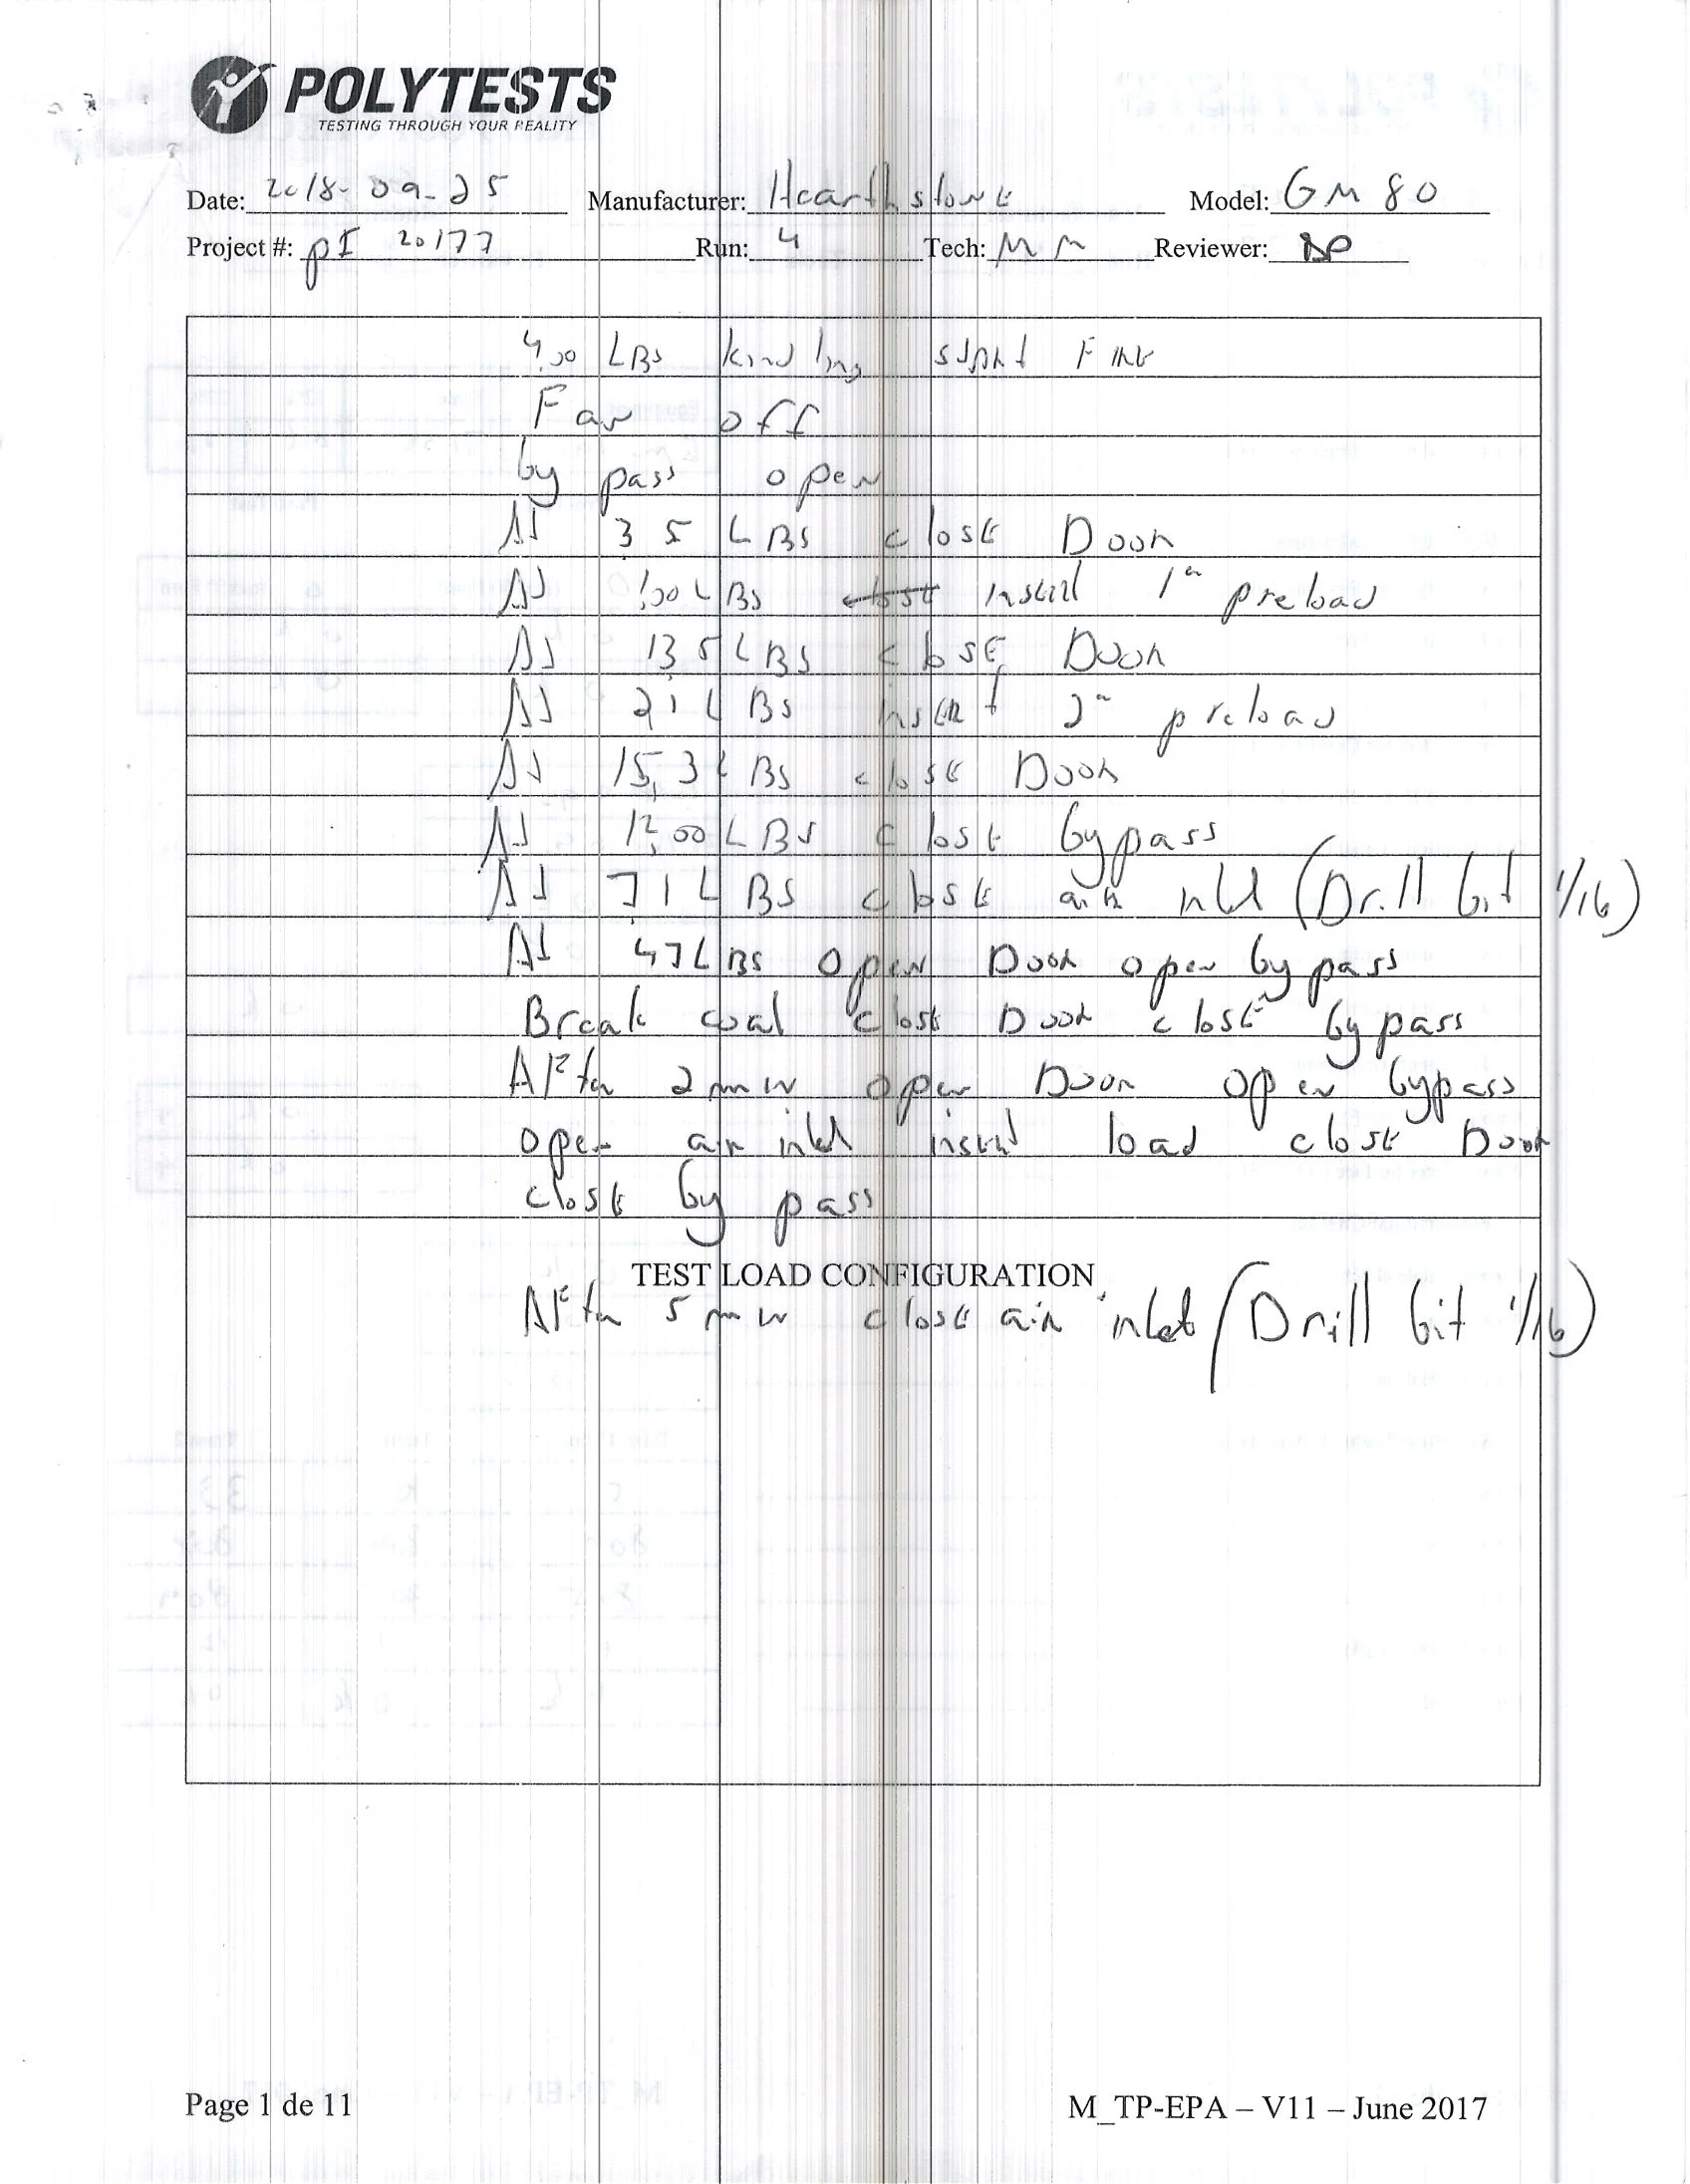 POLYTESTS
TESTING THROUGH YOUR REALITY
Date: 2018-09-25 Manufacturer: Hearthstone Model: GM 80
Project #: pI 20177 Run: 4 Tech: MM Reviewer: DP
4,00 LBS kindling start Fire
Fan off
by pass open
At 3,5 LBS close Door
At 1,00 LBS close insert 1er preload
At 13,5 LBS close Door
At 2,1 LBS insert 2e preload
At 15,3 LBS close Door
At 12,00 LBS close bypass
At 7,1 LBS close air inlet (Drill bit 1/16)
At 4,7 LBS open Door open by pass
Break coal close Door close by pass
After 2 min open Door open bypass
open air inlet insert load close Door
close by pass
TEST LOAD CONFIGURATION
After 5 min close air inlet (Drill bit 1/16)
Page 1 de 11 M_TP-EPA – V11 – June 2017